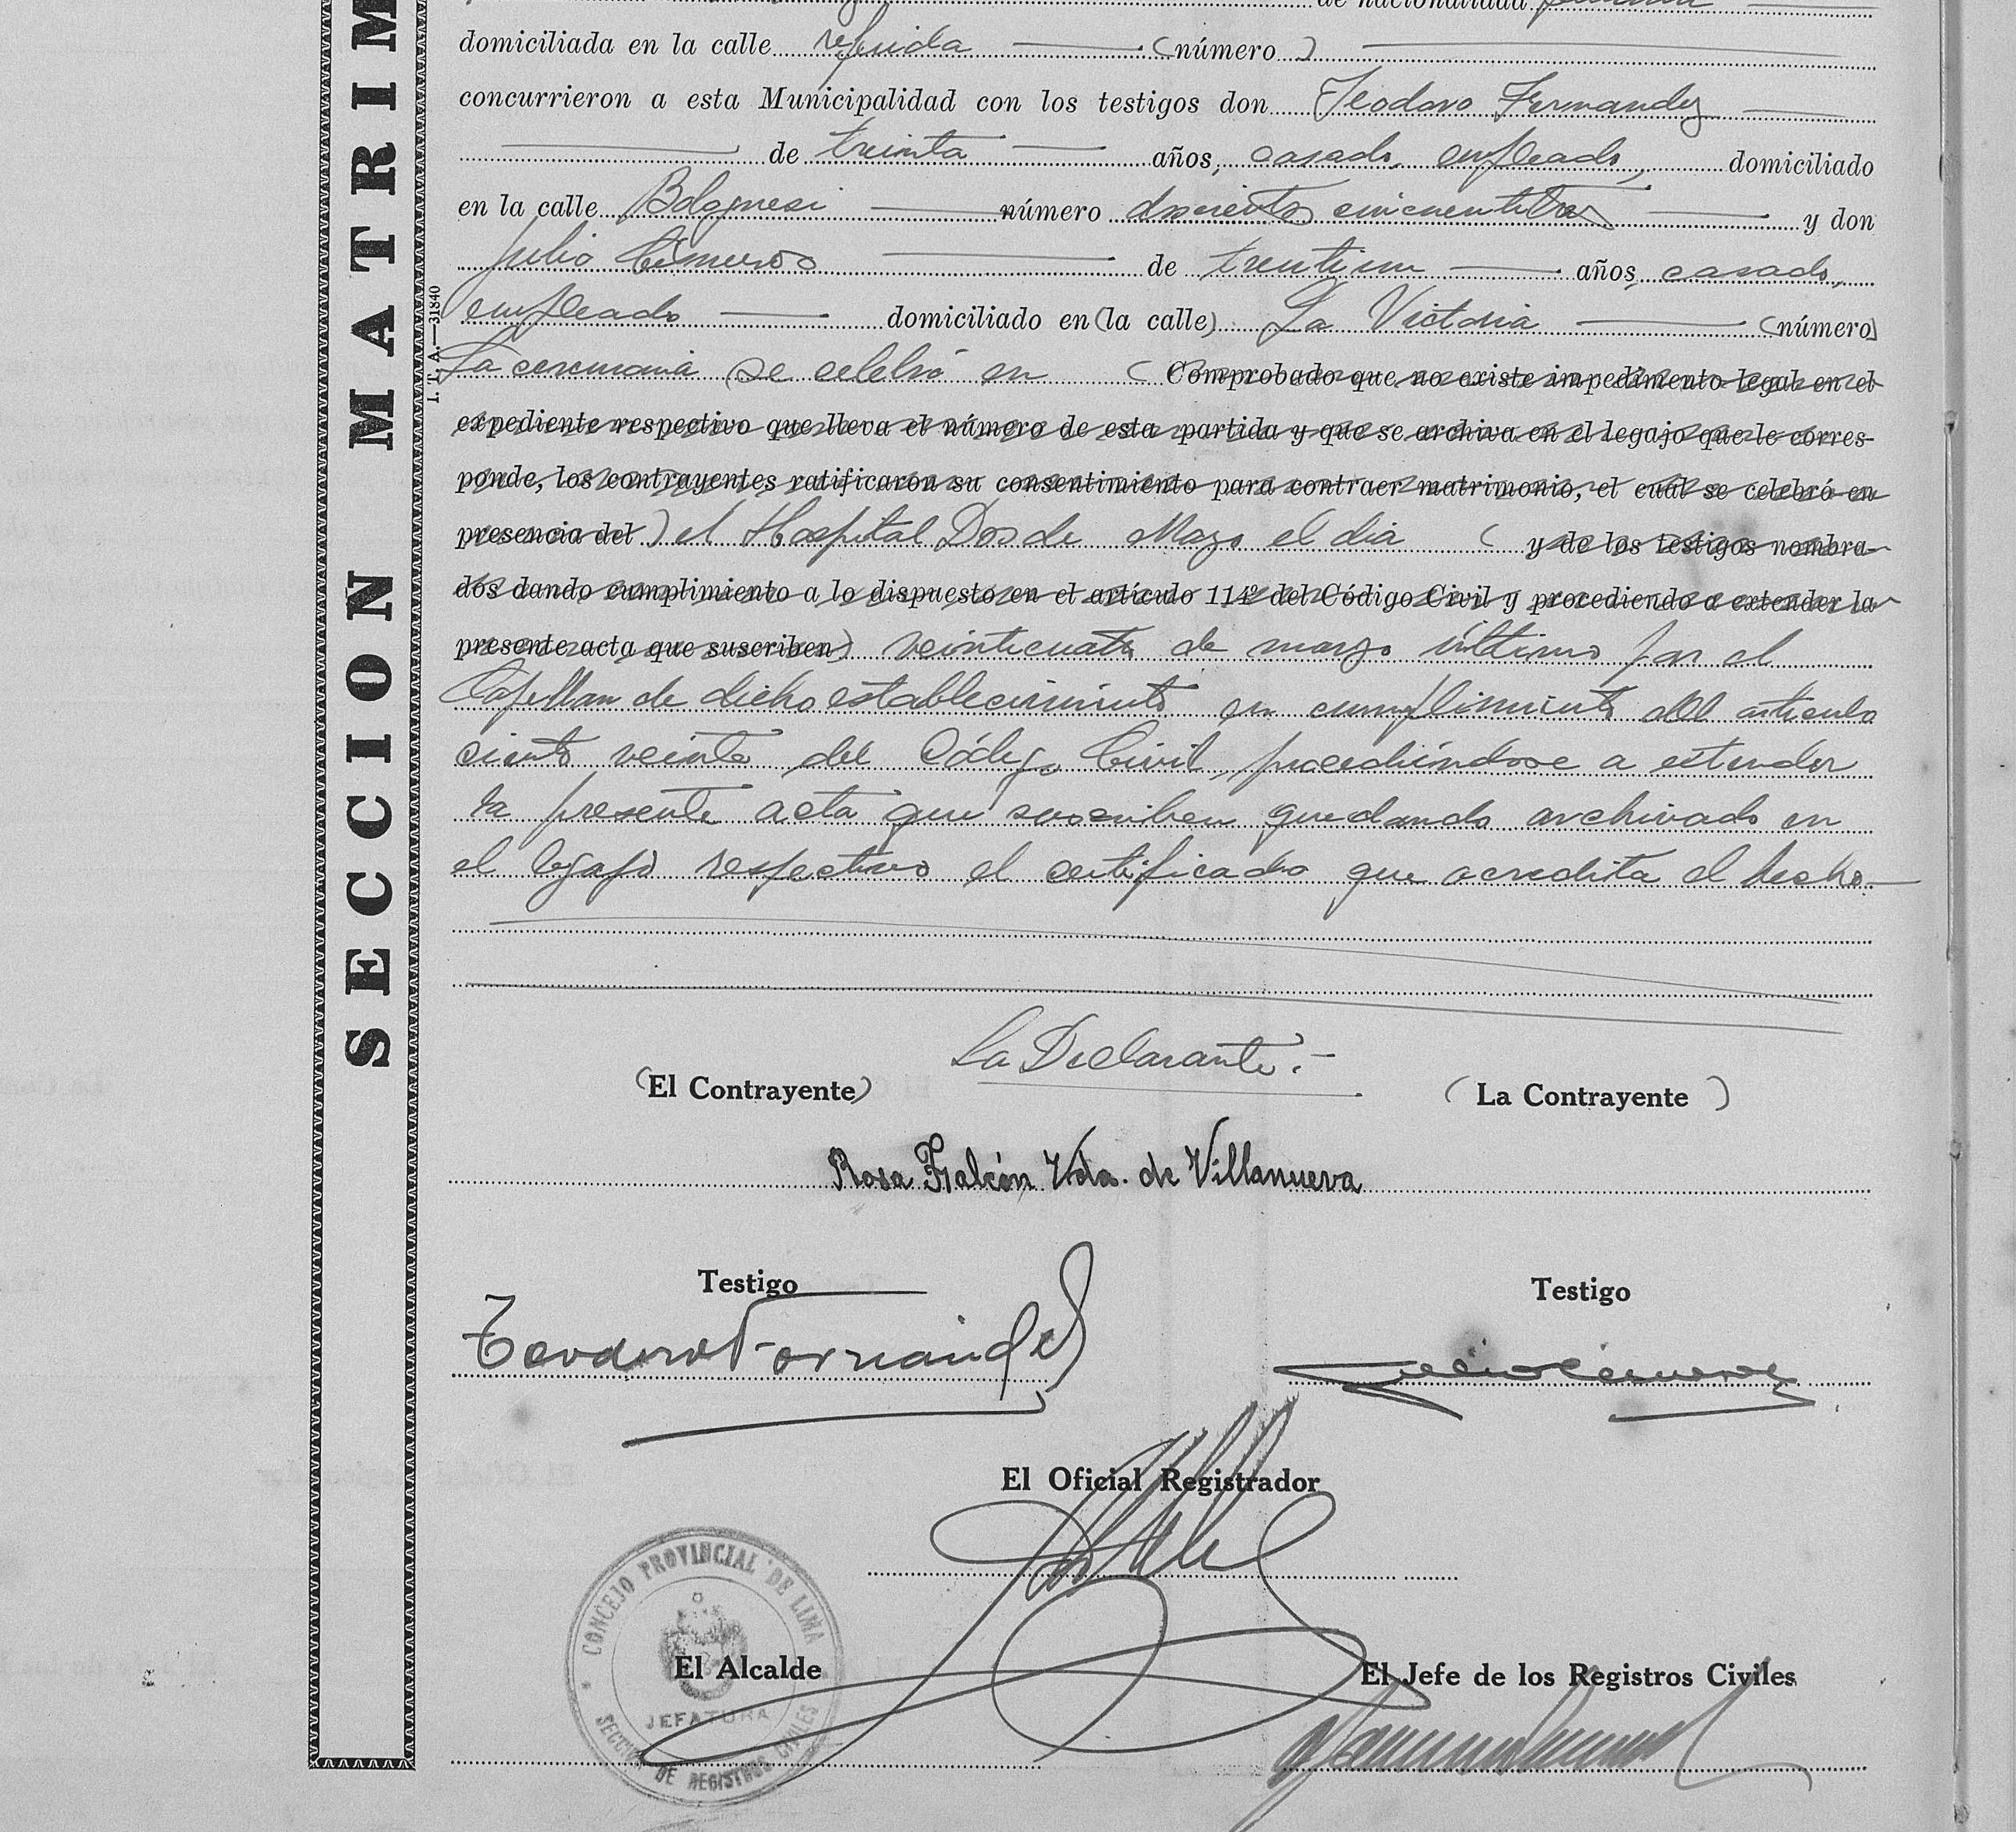 de nacionalidad peruana
domiciliada en la calle referida (número)
concurrieron a esta Municipalidad con los testigos don Teodoro Fernandez
de treinta años, casado, empleado, domiciliado
en la calle Bolognesi número doscientos cincuentitres y don
Julio Cisneros de trentiun años, casado,
empleado domiciliado en (la calle) La Victoria (número)
La ceremonia se celebró en (Comprobado que no existe impedimento legal en el
expediente respectivo que lleva el número de esta partida y que se archiva en el legajo que le corres-
ponde, los contrayentes ratificaron su consentimiento para contraer matrimonio, el cual se celebró en
presencia del) el Hospital Dos de Mayo el dia (y de los testigos nombra-
dos dando cumplimiento a lo dispuesto en el artículo 114º del Código Civil y procediendo a extender la
presente acta que suscriben) veinticuatro de marzo último por el
Capellan de dicho establecimiento en cumplimiento del articulo
ciento veinte del Código Civil, procediéndose a estender
la presente acta que suscriben quedando archivado en
el legajo respectivo el certificado que acredita el hecho
La Declarante.-
(El Contrayente) (La Contrayente)
Rosa Falcón Vda. de Villanueva
Testigo Testigo
Teodoro Fernandez Julio Cisneros
El Oficial Registrador
El Alcalde El Jefe de los Registros Civiles
CONCEJO PROVINCIAL DE LIMA
JEFATURA
SECCION DE REGISTROS CIVILES
SECCION MATRIM
I. T. A.—31840